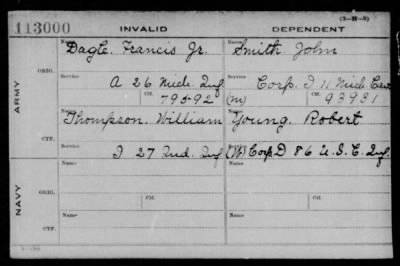 (3-H-5)
113000 INVALID DEPENDENT
Name Name
Dagle, Francis Jr. Smith John
ORIG. Service Service
A 26 Mich. Inf Corp. I 11 Mich Cav
Ctf. 795-92 (M) Ctf. 93931
ARMY
Name Name
Thompson, William Young, Robert
CTF. Service Service
I 27 Ind. Inf (W) Corp. D 86 U. S. C. Inf.
Name Name
ORIG. Ctf. Ctf.
NAVY
Name Name
CTF.